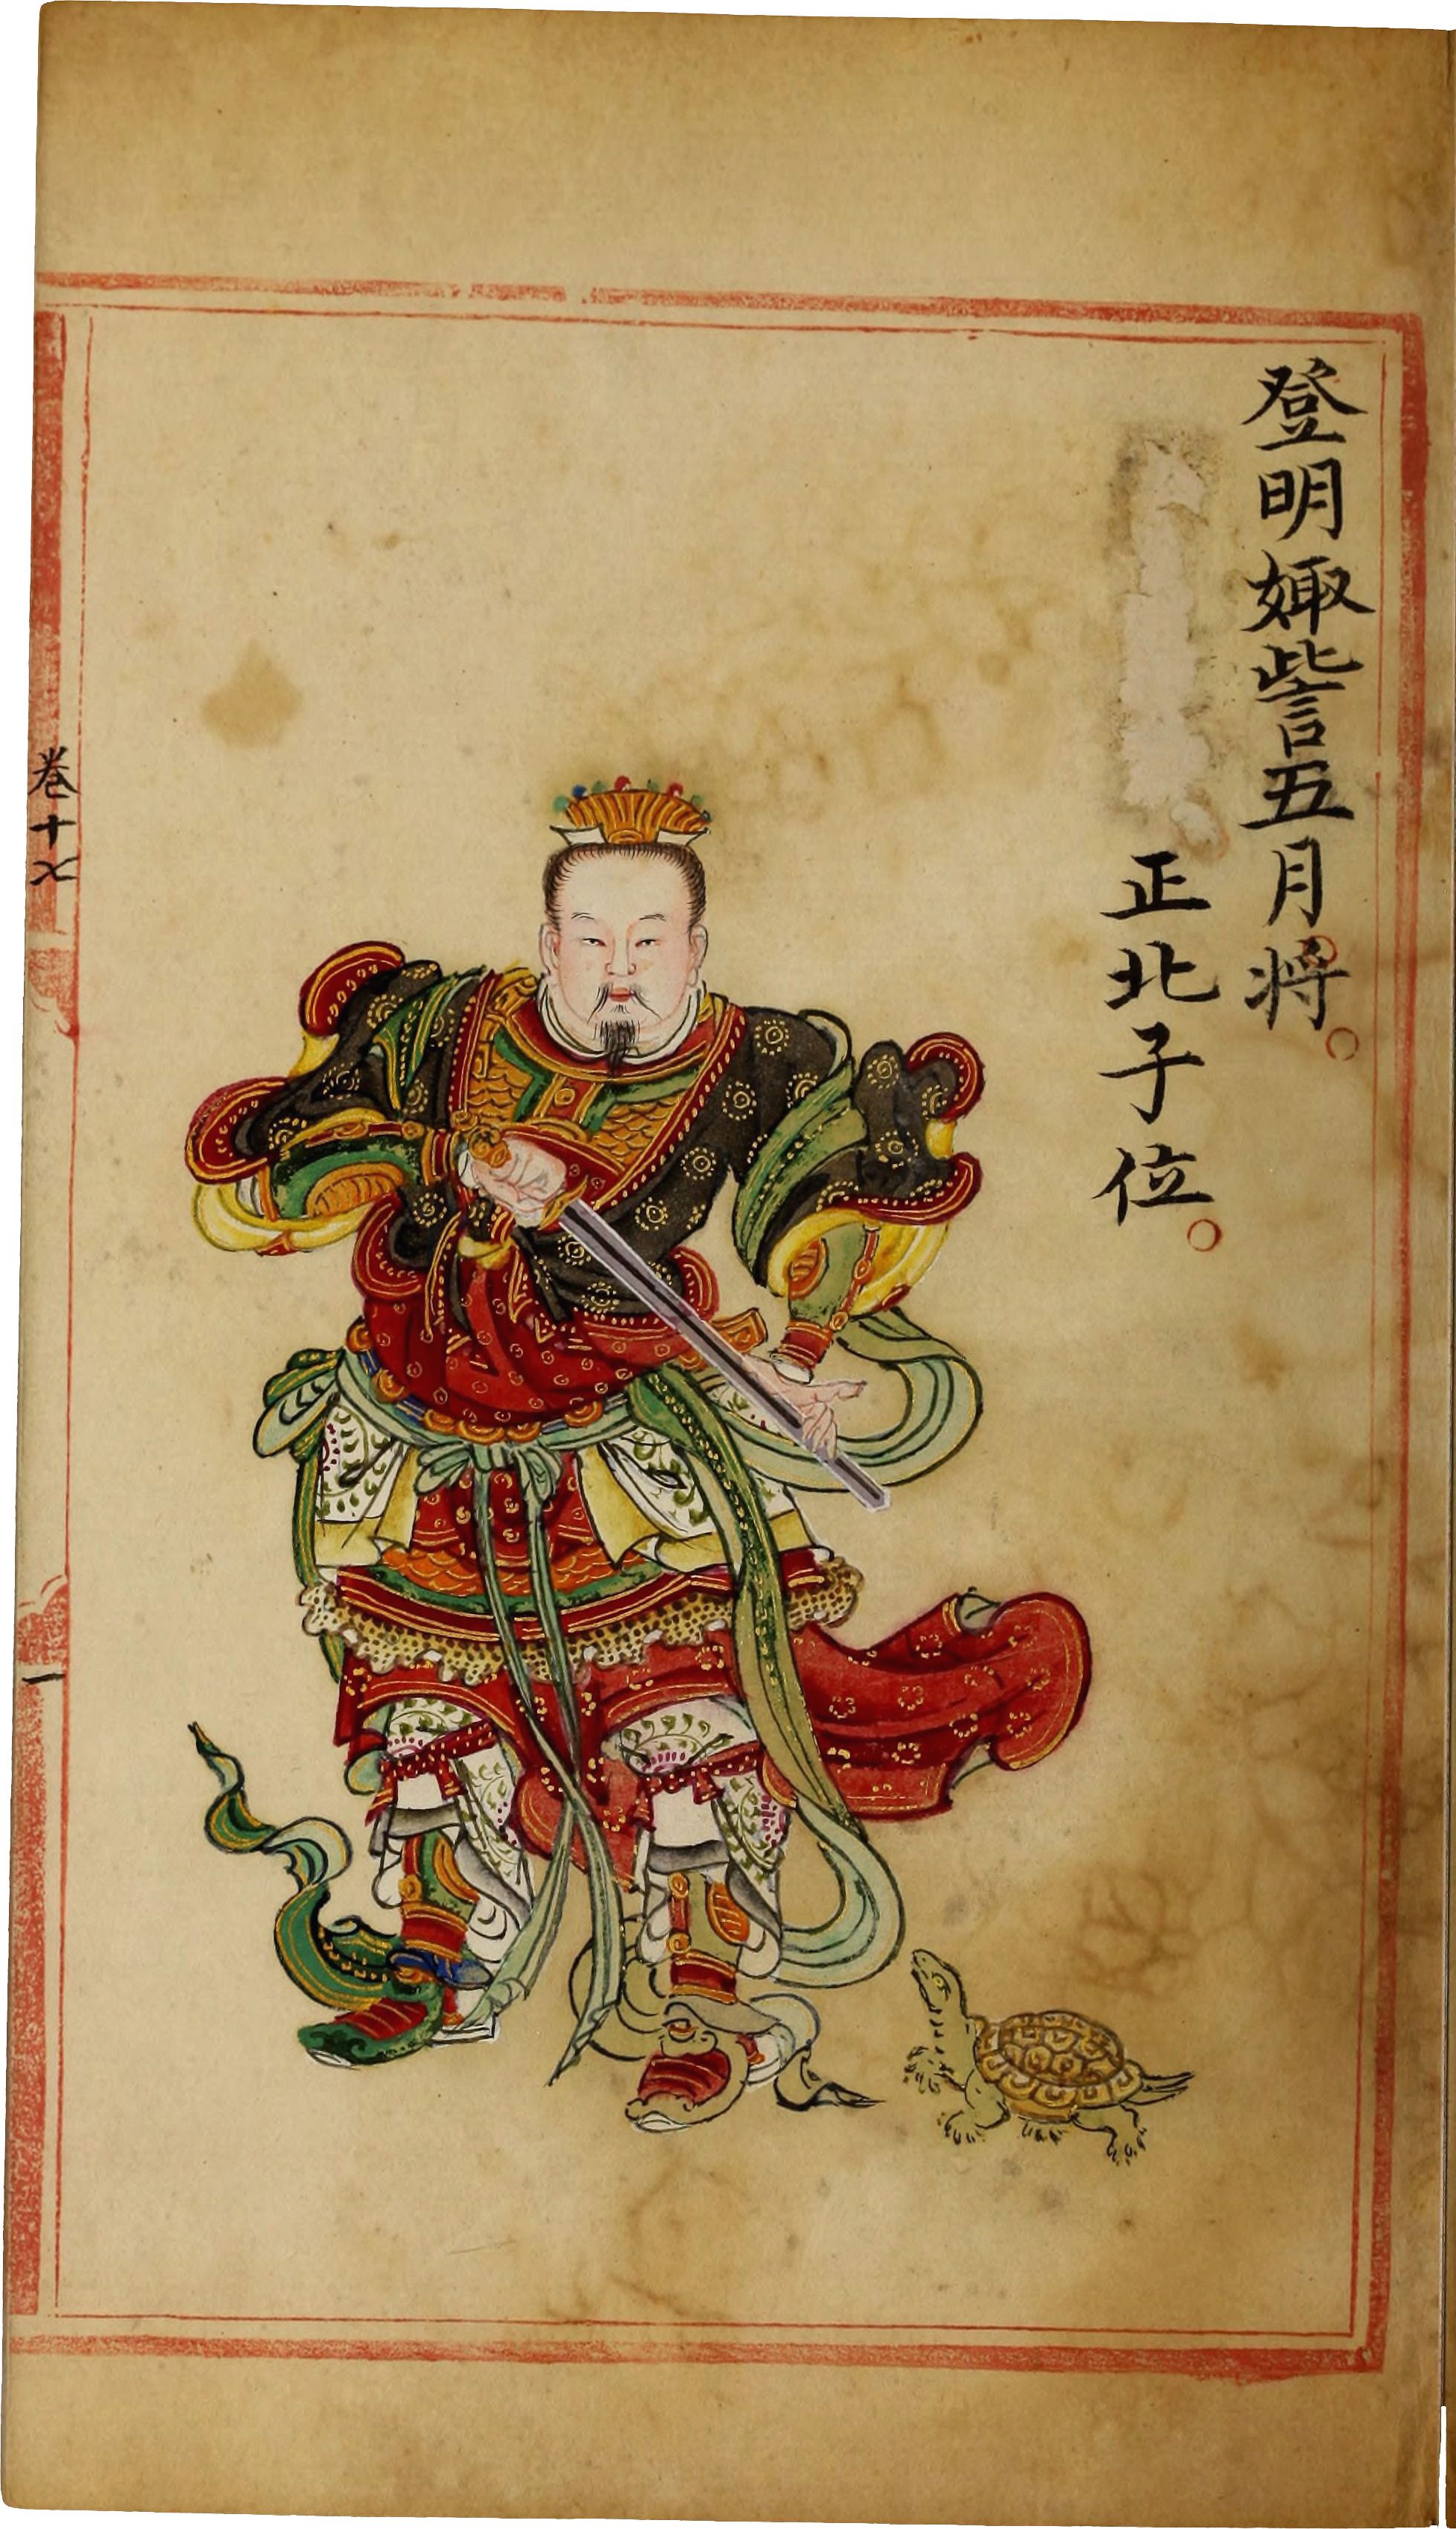 登明娵訾五月将。
正北子位。
卷十七
一